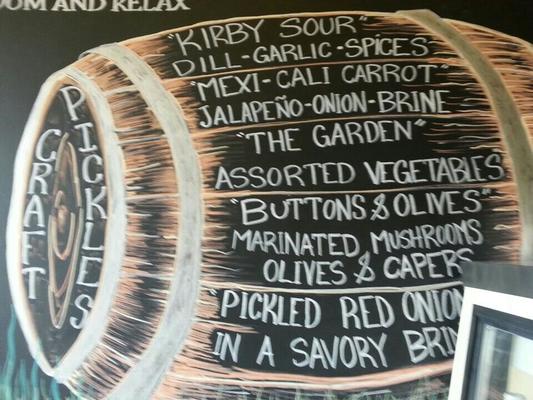 AND RELAX
CRAFT
PICKLES
"KIRBY SOUR"
DILL-GARLIC-SPICES
"MEXI-CALI CARROT"
JALAPEÑO-ONION-BRINE
"THE GARDEN"
ASSORTED VEGETABLES
"BUTTONS & OLIVES"
MARINATED MUSHROOMS
OLIVES & CAPERS
"PICKLED RED ONION
IN A SAVORY